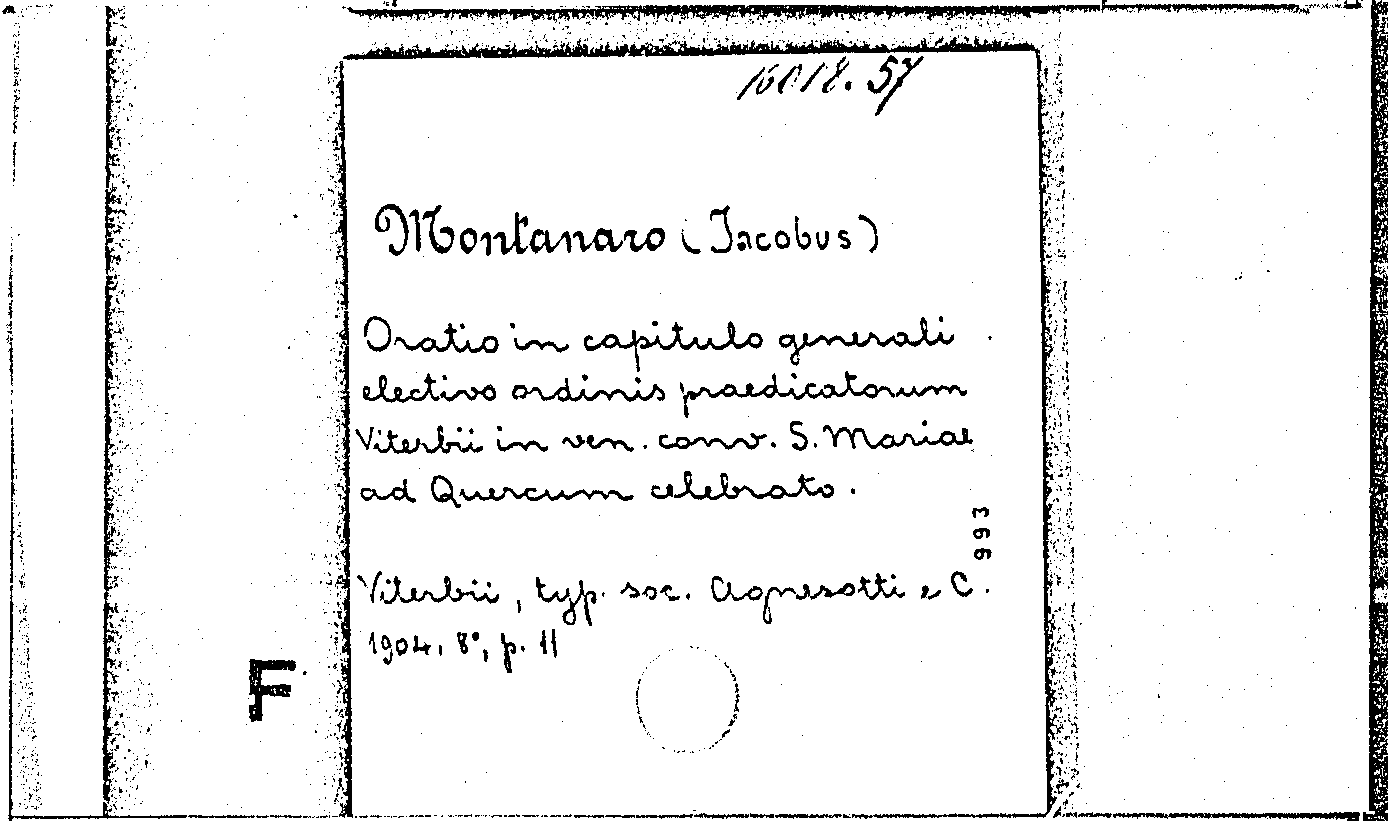 16018.57
Montanaro (Jacobus)
Oratio in capitulo generali
electivo ordinis praedicatorum
Viterbii in ven. conv. S. Mariae
ad Quercum celebrato.
993
Viterbii, typ. soc. Agnesotti e C.
1904. 8°, p. 11
F